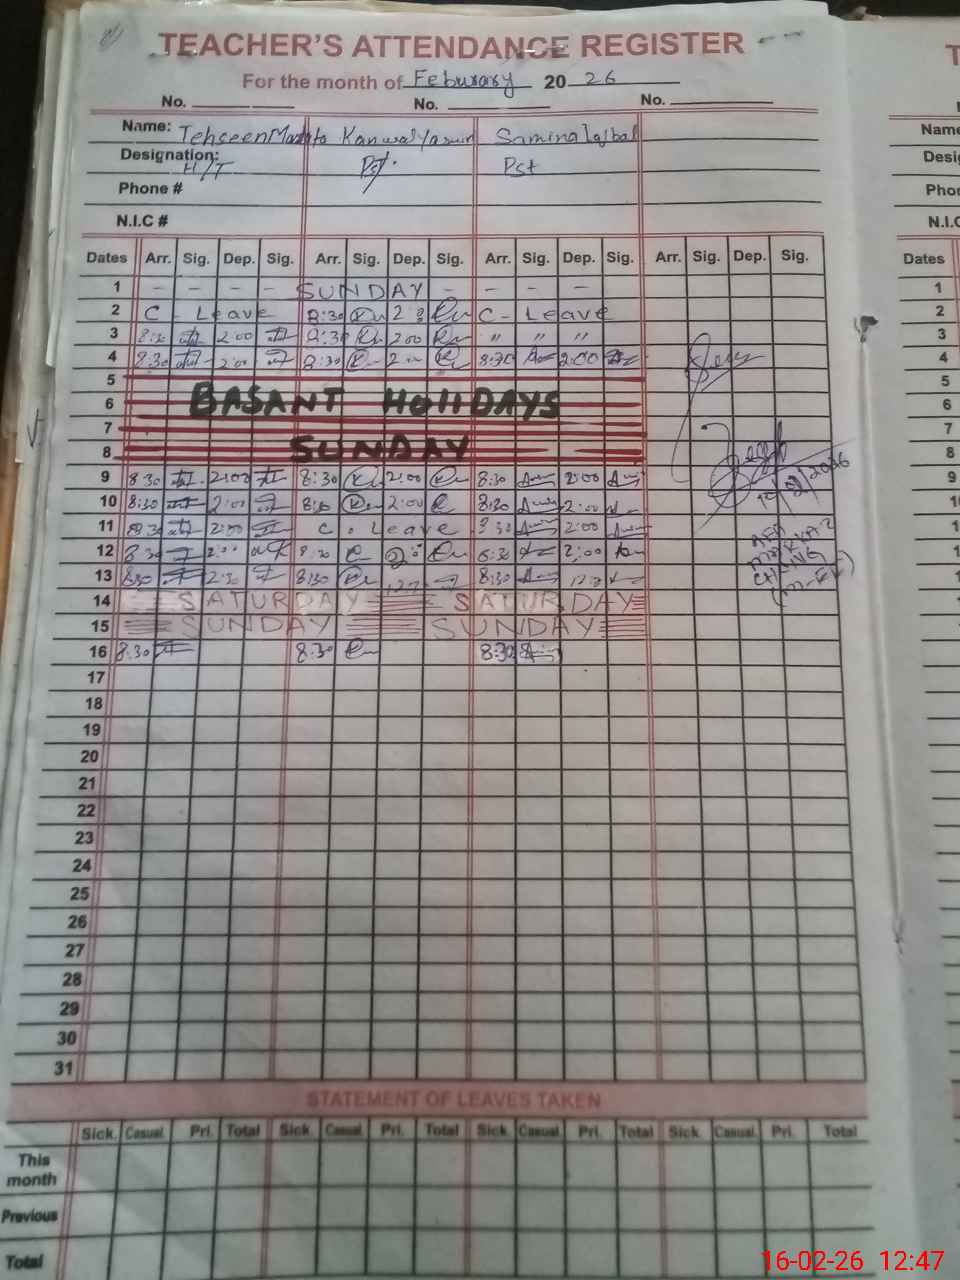 TEACHER'S ATTENDANCE REGISTER
For the month of Feburary 20 26
No. No. No.
Name: Tehseen Kanwal Yasmin Samina Iqbal
Designation: H/T Pst. Pst
Phone #
N.I.C #
Dates Arr. Sig. Dep. Sig. Arr. Sig. Dep. Sig. Arr. Sig. Dep. Sig. Arr. Sig. Dep. Sig.
1 - - - - SUNDAY - - - -
2 C - Leave 8:30 C - Leave
3 8:30 2:00 8:30 2:00 " " "
4 8:30 2:00 8:30 8:30 2:00
5
6 BASANT HOliDAYS
7
8 SUNDAY
9 8:30 2:00 8:30 2:00 8:30 2:00
10 8:30 2:00 8:30 2:00 8:30 2:00
11 8:30 2:00 C. Leave 8:30 2:00
12 8:30 2:00 8:30 8:30 2:00
13 8:30 2:30 8:30 8:30
14 SATURDAY SATURDAY
15 SUNDAY SUNDAY
16 8:30 8:30 8:30
17
18
19
20
21
22
23
24
25
26
27
28
29
30
31
AEO
MARKAZ
CHUNG
STATEMENT OF LEAVES TAKEN
Sick. Casual. Pri. Total Sick. Casual. Pri. Total Sick. Casual. Pri. Total Sick. Casual. Pri. Total
This month
Previous
Total
T
Name
Desig
Pho
N.I.C
Dates
1
2
3
4
5
6
7
8
9
10
11
12
13
14
15
16
17
18
19
20
21
22
23
24
25
26
27
28
29
30
31
16-02-26 12:47